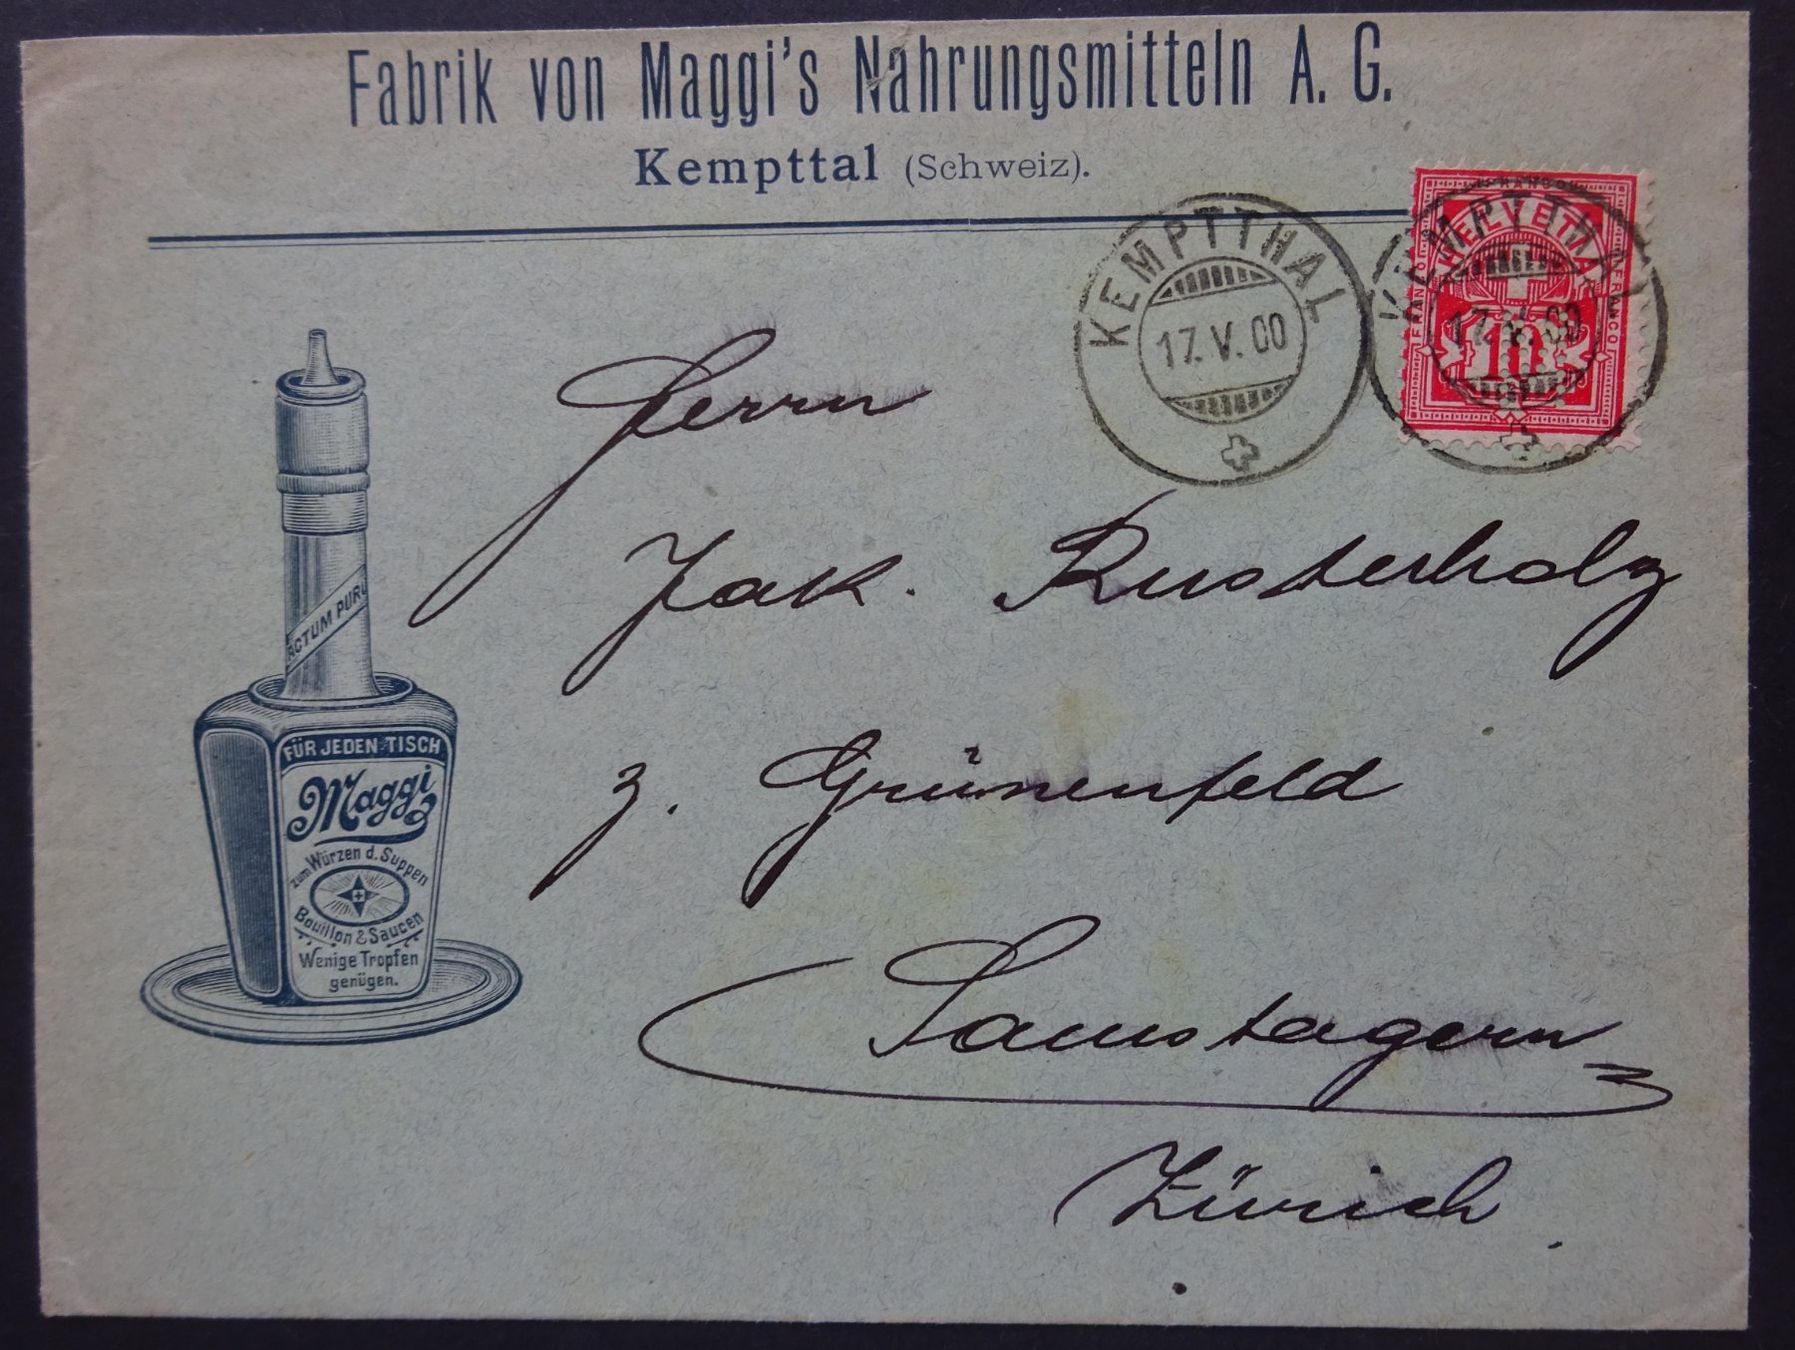 Fabrik von Maggi's Nahrungsmitteln A. G.
Kempttal (Schweiz).
KEMPTTHAL
17. V. 00
KEMPTTHAL
17. V. 00
FRANCO
HELVETIA
FRANCO
FRANCO
10
Herrn
Jak. Rusterholz
z. Grünenfeld
Samstagern
Zürich.
ACTUM PURU
FÜR JEDEN TISCH
Maggi
zum Würzen d. Suppen
Bouillon & Saucen
Wenige Tropfen
genügen.